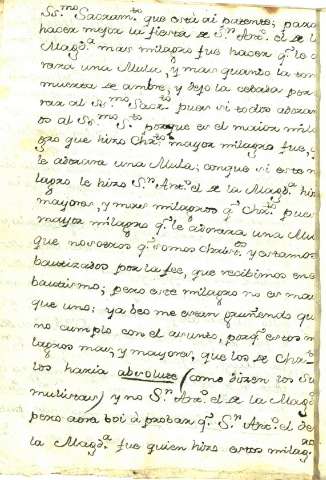 SS.mo Sacram.to que está ai patente; para
hacer mejor la fiesta de S.n Ant.o el de la
Magd.a mas milagro fue hacer q.e le a
rara una Mula, y mas quando la tem
muerta de ambre, y dejo la cebada por
rar al SS.mo Sacr.to pues si todos adoram
os al SS.mo S.to porque es el maior mila
gro que hizo Chr.to mayor milagro fue, q
le adorara una Mula; conque si este mi
lagro le hizo S.n Ant.o el de la Magd.a hizo
mayores, y mas milagros q.e Chr.to pues
mayor milagro q.e le adorara una Mu
que nosotros q.e somos Christ.s y estamos
bautizados por la fee, que recibimos en el
bautismo; pero este milagro no es mas
que uno: ya beo me estan gruñendo que
no cumplo con el asunto, porq.e estos mi
lagros mas, y mayores, que los de Chr.to
los haria absolute (como dizen los Su
mulistas) y no S.n Ant.o el de la Magd.a
pero aora boi à probar q.e S.n Ant.o el de
la Magd.a fue quien hizo estos milag.s